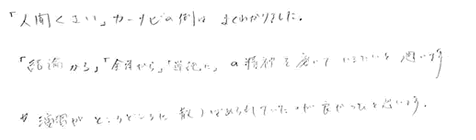 「人間くさい」カーナビの例は よくわかりました。
「結論から」「全体から」「単純に」の精神を磨いていきたいと思います
# 演習がところどころに散りばめられていたのが良かったと思います。